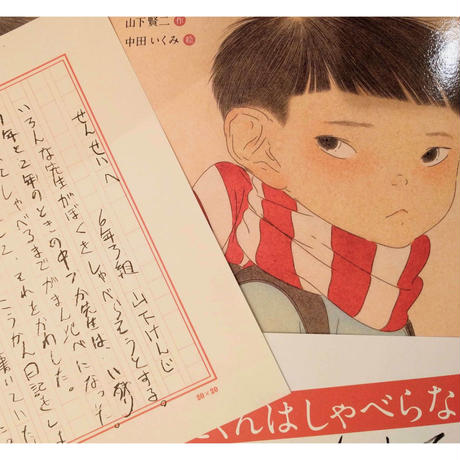 山下賢二 作
中田いくみ 絵
せんせいへ
6年3組 山下けんじ
いろんな先生がぼくをしゃべらそうとする。
年と2年のときの中 先生は、い残
しゃべるまでがまん比べになった。
それをかわした。
こうかん日記をし
書いていた
20×20
くんはしゃべらな